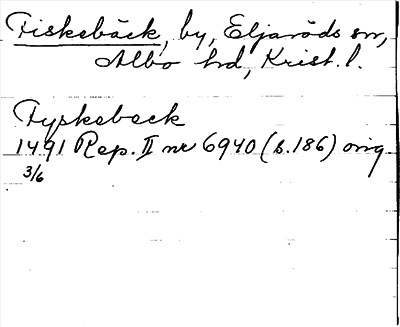 Fiskebäck, by, Eljaröds sn,
Albo hd, Krist. l.
Fyskebeck
1491 Rep. II nr 6940 (s. 186) orig
3/6